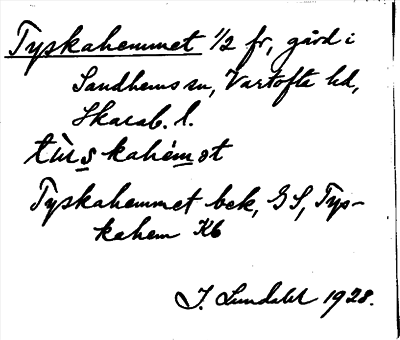 Tyskahemmet 1/2 fr, gård i
Sandhems sn, Vartofta hd,
Skarab. l.
tùskahémət
Tyskahemmet bek, GS, Tys-
kahem Kb
J. Lundahl 1928.